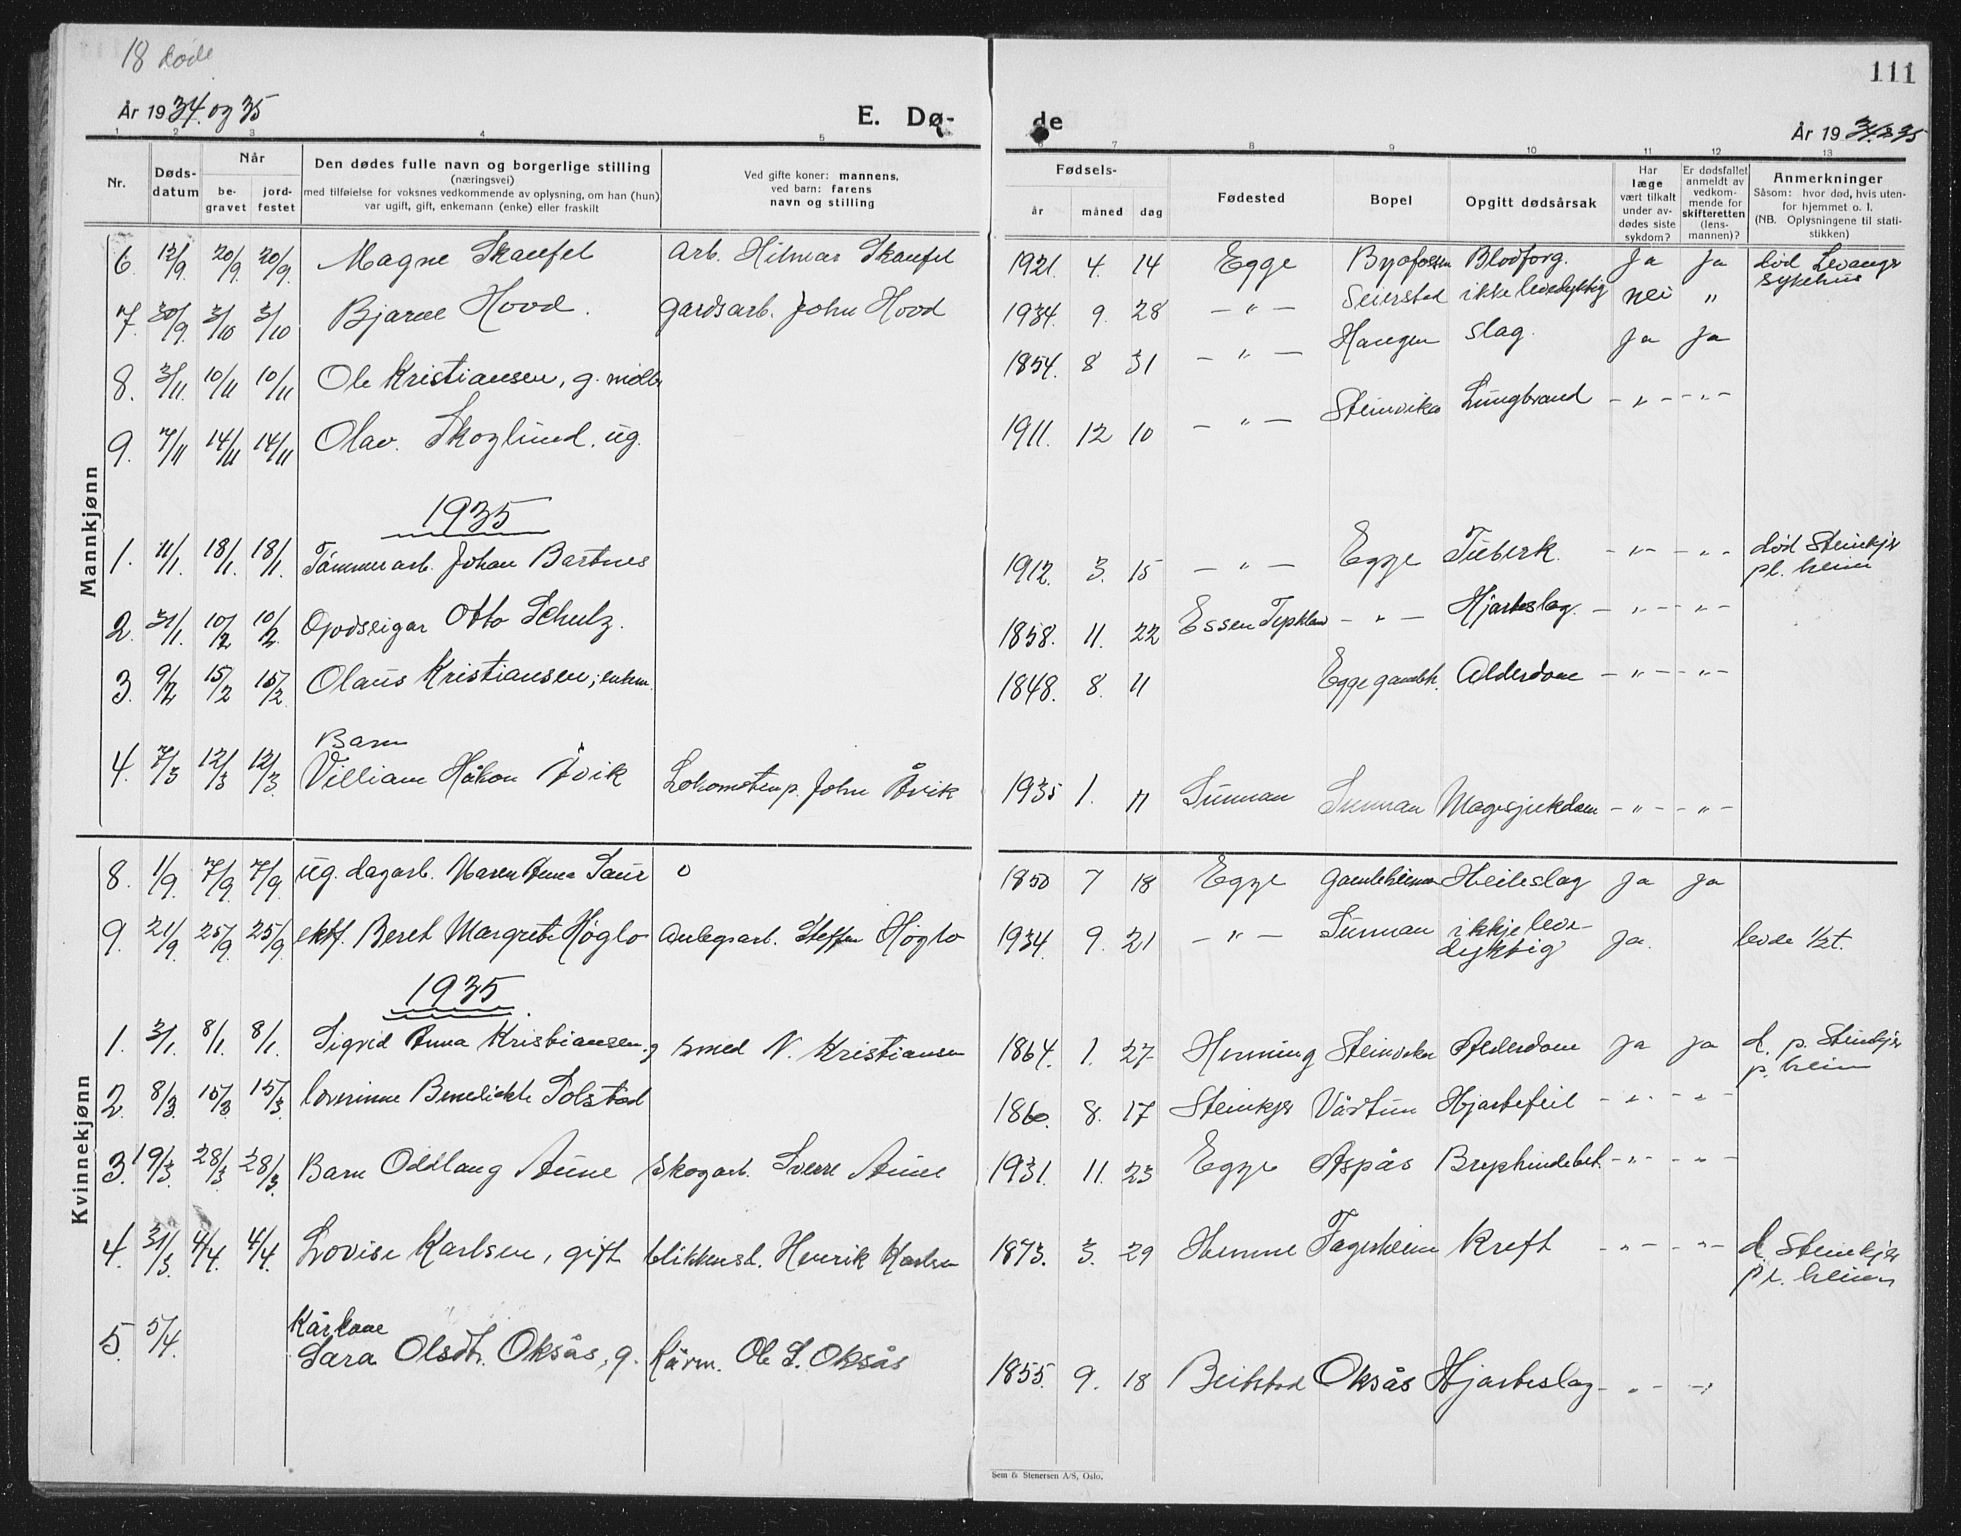 18 døde
111
År 1934. og 35
E. Dø-
de
År 1934 & 35
1 2 3 4 5 6 7 8 9 10 11 12 13
Nr. Døds-datum Når be-gravet jord-festet Den dødes fulle navn og borgerlige stilling (næringsvei) med tilføielse for voksnes vedkommende av oplysning, om han (hun) var ugift, gift, enkemann (enke) eller fraskilt Ved gifte koner: mannens, ved barn: farens navn og stilling Fødsels- år måned dag Fødested Bopel Opgitt dødsårsak Har læge vært tilkalt under av-dødes siste sykdom? Er dødsfallet anmeldt av vedkom-mende for skifteretten (lens-mannen)? Anmerkninger Såsom: hvor død, hvis uten-for hjemmet o. l. (NB. Oplysningene til stati-stikken)
Mannkjønn
6. 12/9. 20/9 20/9. Magne Skaufel Arb. Hilmar Skaufel 1921. 4. 14 Egge Byafossen Blodforg. Ja Ja død Levanger sykehus
7. 30/9. 3/10 3/10 Bjarne Hovd. gardsarb. John Hovd 1934. 9. 28 — " — Seierstad ikke levedyktig nei "
8. 3/11. 10/11 10/11 Ole Kristiansen, g. 1854. 8 31 — " — Haugen slag. Ja Ja
9. 7/11 14/11 14/11 Olav. Skoglund. ug. 1911. 12 10 — " — Steinvika Lungbrand — " — — " —
1935
1. 11/1. 18/1. 18/1. Tømmerarb. Johan Bartnes 1912. 3. 15 — " — Egge Tuberk. — " — — " — død Steinkjer pl. heim
2. 31/1. 10/2 10/2. Godseigar Otto Schulz. 1858. 11. 22 Essen Typkland — " — Hjarteslag. — " — — " —
3. 9/2 15/2 15/2. Olaus Kristiansen, enkm. 1848. 8. 11 Egge gamleh. Alderdom — " — — " —
4. 7/3 12/3 12/3. Barn Villiam Håkon Åvik Lokomotivp. John Åvik 1935 1. 11 Sunnan Sunnan Magesjukdom — " — — " —
Kvinnekjønn
8. 1/9. 7/9 7/9 ug. dagarb. Maren Anna Saur o 1850 7 18 Egge gamleheimen Heileslag Ja Ja
9. 21/9. 25/9. 25/9. ektf. Beret Margrete Høglo Anlegsarb. Steffen Høglo 1934 9. 21 — " — Sunnan ikkje leve-dyktig Ja. levde 1/2 t.
1935
1. 3/1. 8/1. 8/1. Sigrid Anna Kristiansen, g smed N. Kristiansen 1864. 1. 27 Henning Steinvika Alderdom Ja Ja d. p. Steinkjer p. heim
2. 8/3 15/3 15/3. Benedikte Solstad 1860. 8. 17 Steinkjer Vårtun Hjartefeil — " — — " —
3. 19/3. 28/3. 28/3. Barn Oddlaug Aune Skogarb. Sverre Aune 1931. 11. 23 Egge Aspås Brysthindebet. — " — — " —
4. 31/3. 4/4. 4/4. Lovise Karlsen, gift blikkensl. Henrik Karlsen 1873. 3. 29 Hemne Fagerheim Kreft — " — — " — d. Steinkjer pl. heim
5. 5/4. Kårkone Sara Olsdt. Oksås, g. Kårm. Ole S. Oksås 1855. 9. 18 Beitstad Oksås Hjarteslag — " — — " —
Sem & Stenersen A/S, Oslo.